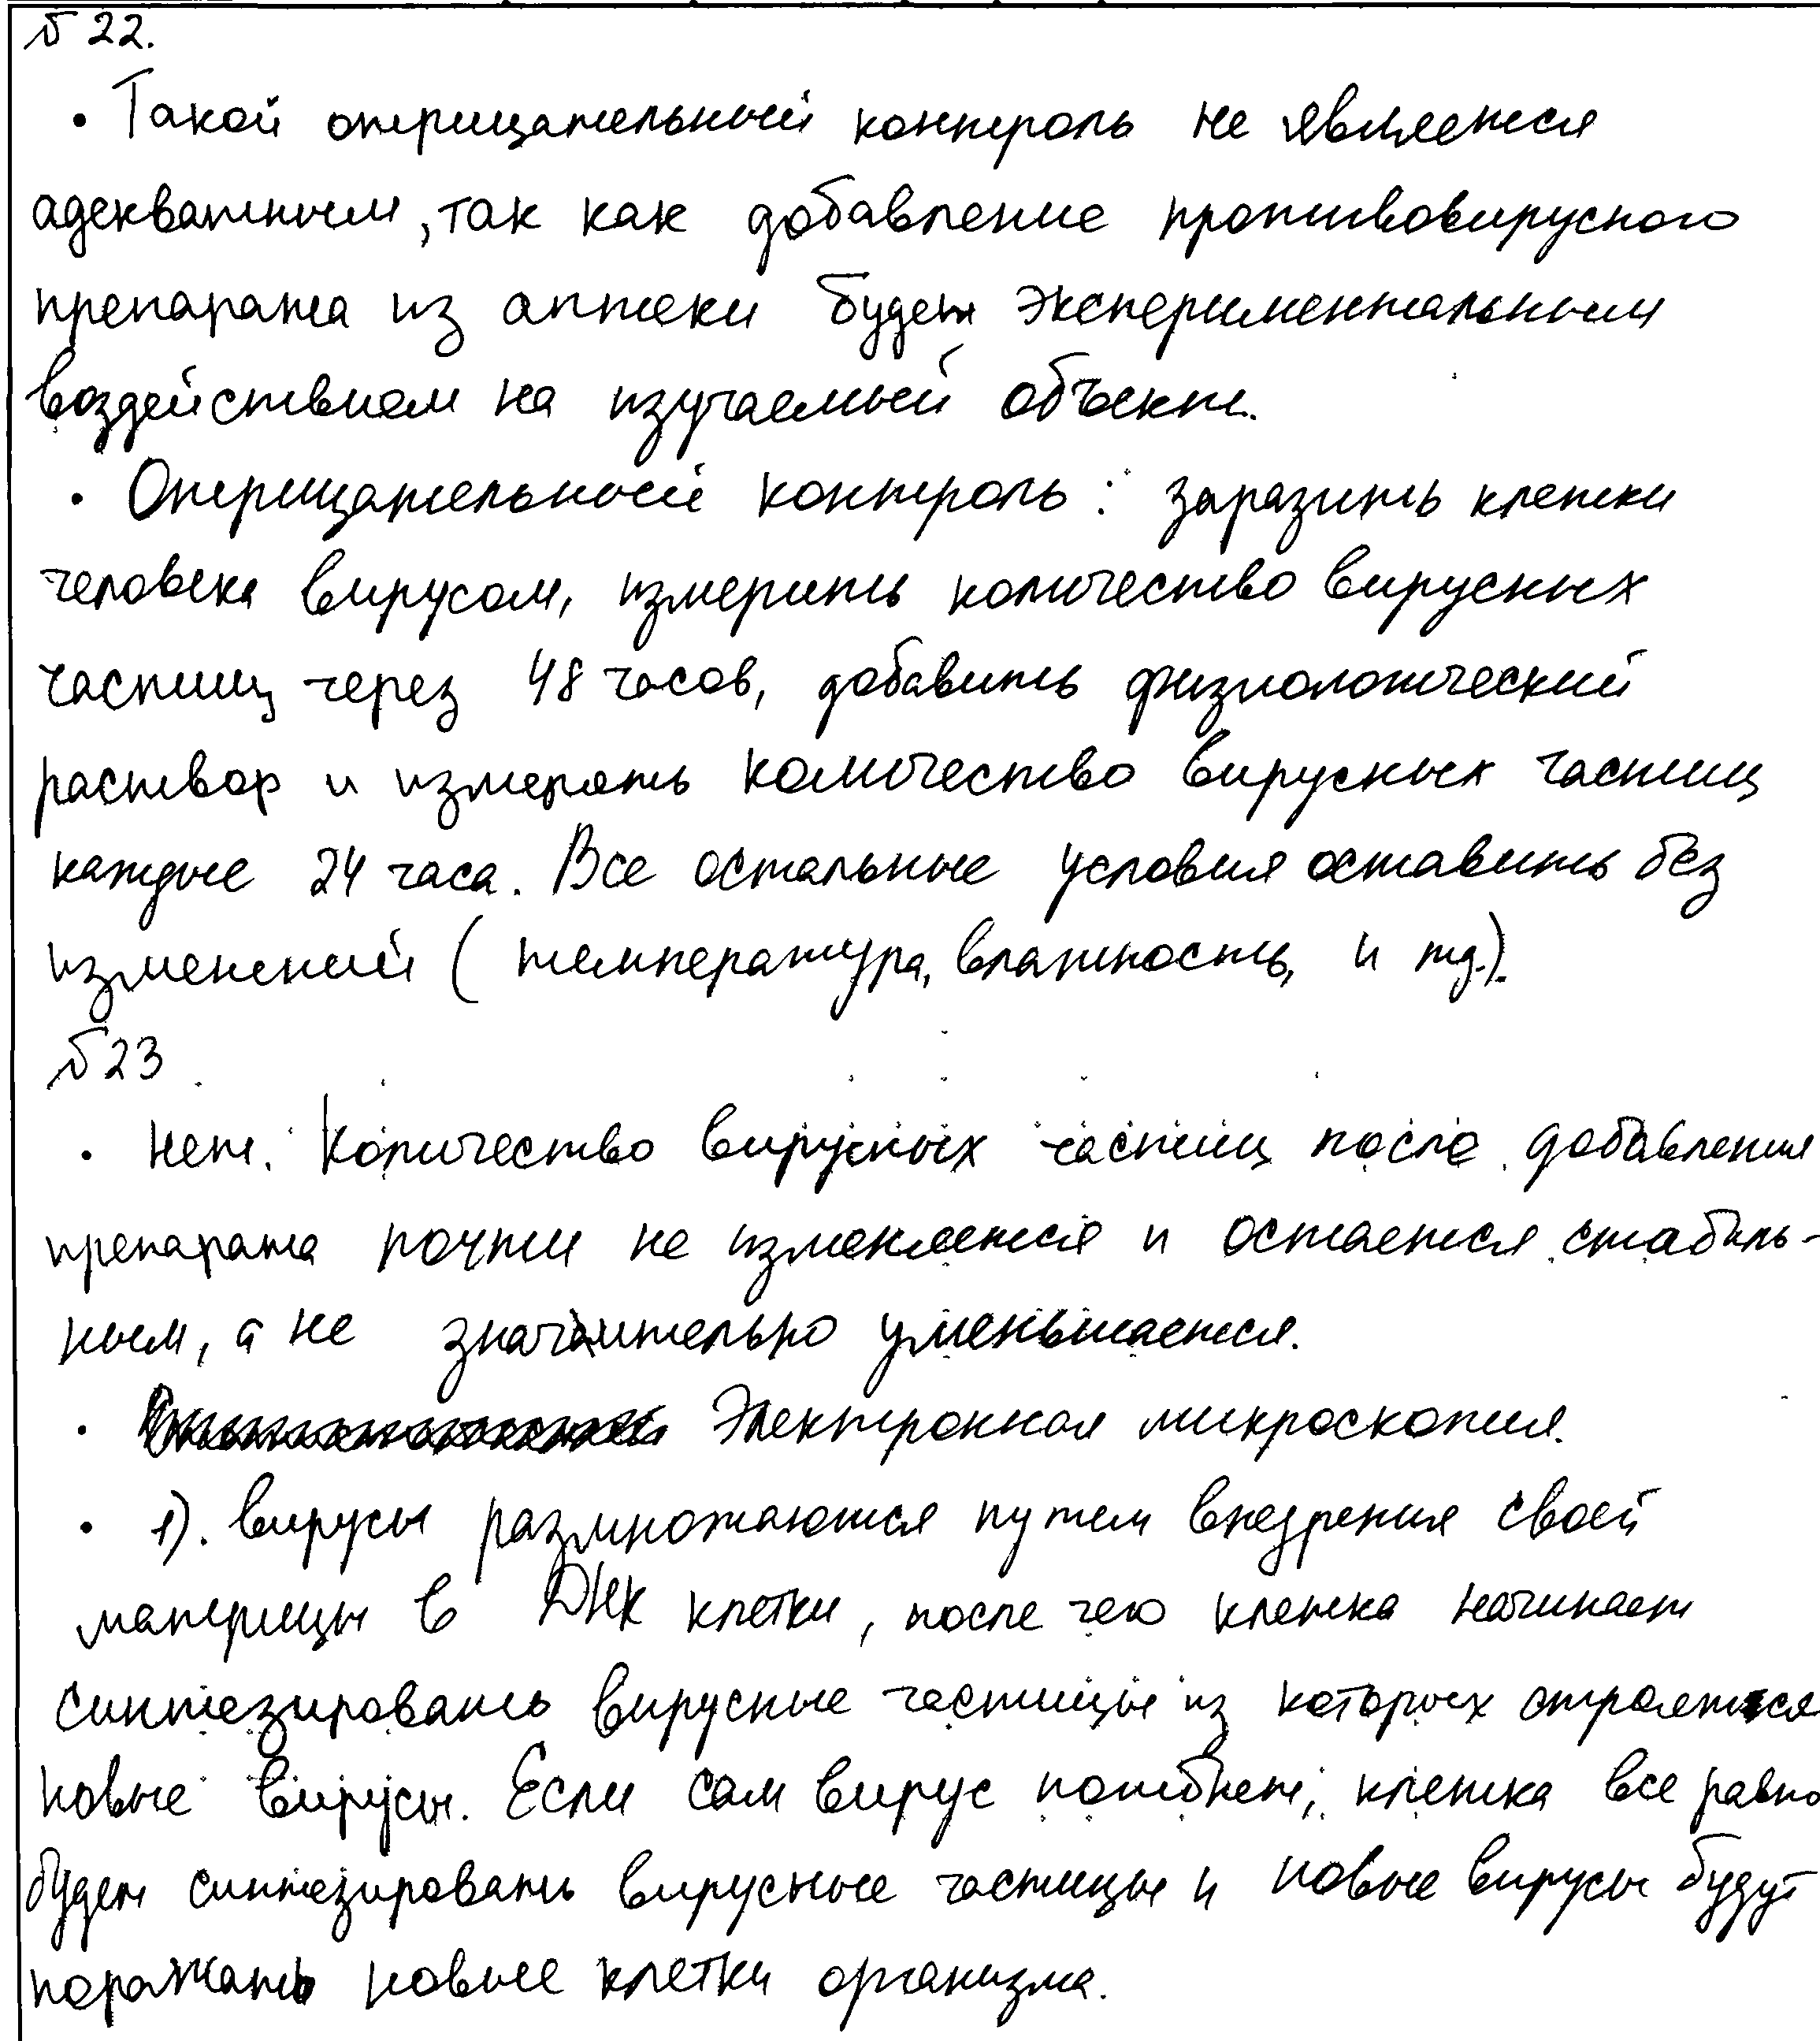 № 22.
• Такой отрицательный контроль не является
адекватным, так как добавление противовирусного
препарата из аптеки будет экспериментальным
воздействием на изучаемый объект.
• Отрицательный контроль: заразить клетки
человека вирусом, измерить количество вирусных
частиц через 48 часов, добавить физиологический
раствор и измерять количество вирусных частиц
каждые 24 часа. Все остальные условия оставить без
изменений (температура, влажность, и тд.).
№ 23
• Нет. Количество вирусных частиц после добавления
препарата почти не изменяется и остается стабиль-
ным, а не значительно уменьшается.
• Электронная микроскопия.
• 1). вирусы размножаются путем внедрения своей
матрицы в ДНК клетки, после чего клетка начинает
синтезировать вирусные частицы из которых строятся
новые вирусы. Если сам вирус погибнет, клетка все равно
будет синтезировать вирусные частицы и новые вирусы будут
поражать новые клетки организма.